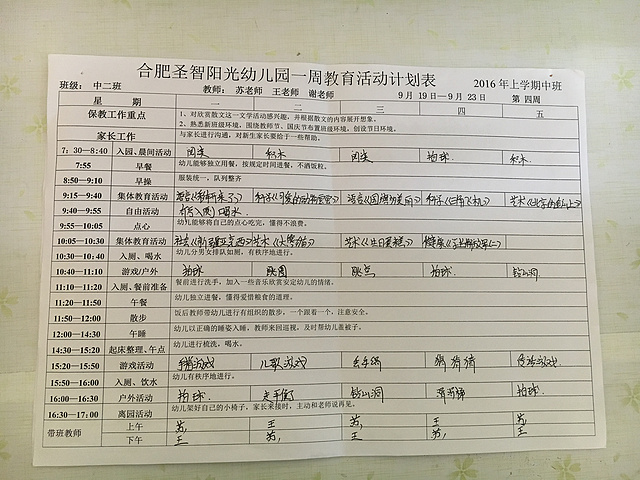 合肥圣智阳光幼儿园一周教育活动计划表
班级： 中二班 教师： 苏老师 王老师 谢老师 9月19日—9月23日 2016年上学期中班 第四周
星 期 一 二 三 四 五
保教工作重点 1、对欣赏散文这一文学活动感兴趣，并根据散文的内容展开想象。
2、熟悉新班级环境，围绕教师节、国庆节布置班级环境，创设节日环境。
家长工作 与家长进行沟通，对新生家长要给予一些帮助。
7：30—8:40 入园、晨间活动 积木 拍球 积木
7:55 早餐 幼儿能够独立用餐，按规定时间进餐，不洒饭粒。
8:50—9:10 早操 服装统一，队列整齐
9:15—9:40 集体教育活动
9:40—9:55 自由活动 入厕 喝水
9:55—10:05 点心 幼儿能够将自己的点心吃完，懂得不浪费。
10:05—10:30 集体教育活动
10:30—10:40 入厕、喝水 幼儿分男女排队如厕，有秩序地进行。
10:40—11:10 游戏/户外 拍球 拍球 钻山洞
11:10—11:20 入厕、餐前准备 餐前进行洗手，加入一些音乐欣赏安定幼儿的情绪。
11:20—11:50 午餐 幼儿独立进餐，懂得爱惜粮食的道理。
11:50—12:00 散步 饭后教师带幼儿进行有组织的散步，一个跟着一个，注意安全。
12:00—14:30 午睡 幼儿以正确的睡姿入睡，教师来回巡视，及时帮幼儿盖被子。
14:30—15:20 起床整理、午点 幼儿进行梳洗，喝水。
15:20—15:50 游戏活动 手指游戏 儿歌游戏 猜猜猜
15:50—16:00 入厕、饮水 幼儿有秩序地进行。
16:00—16:30 户外活动 拍球 走平衡 钻山洞 拍球
16:30—17:00 离园活动 幼儿架好自己的小椅子，家长来接时，主动和老师说再见。
带班教师 上午 苏 王 苏 王 苏
下午 王 苏 王 苏 王